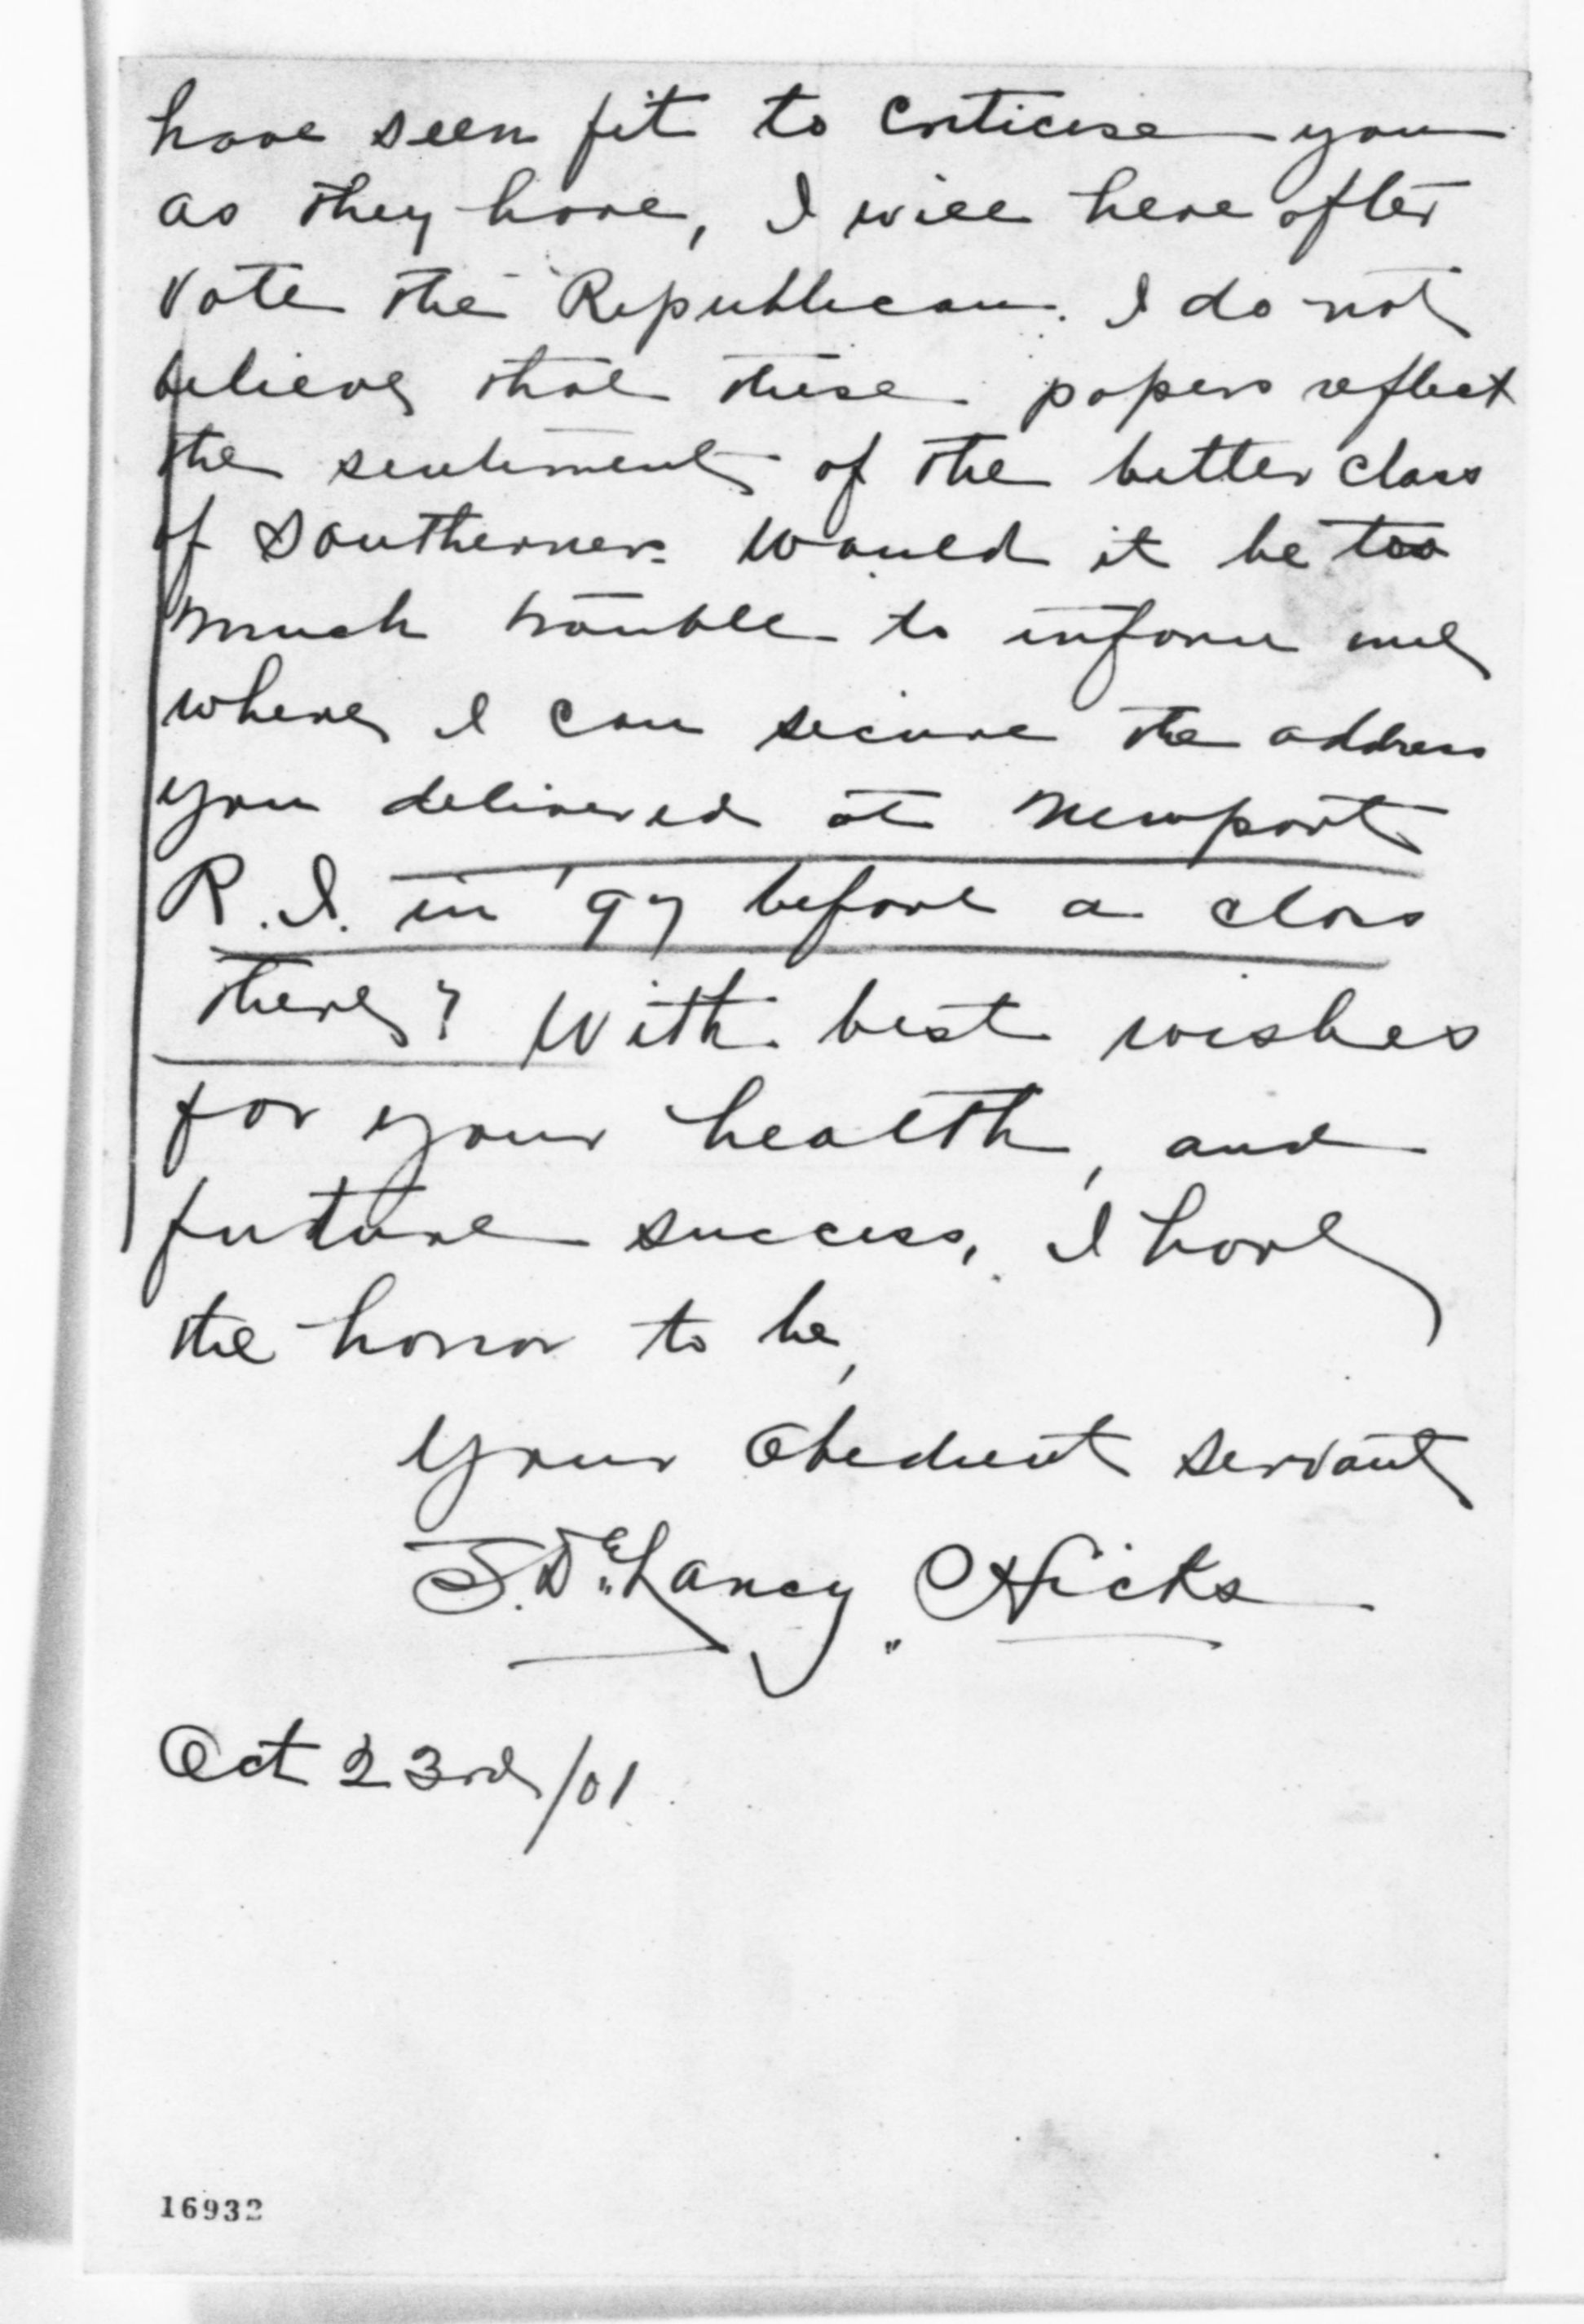 have seen fit to criticise you
as they have, I will here after
vote the Republican. I do not
believe that these papers reflect
the sentiment of the better class
of Southerners. Would it be too
much trouble to inform me
where I can secure the address
you delivered at Newport
R.I. in '97 before a class
there? With best wishes
for your health, and
future success, I have
the honor to be,
Your Obedient servant
S. DeLancy Hicks
Oct 23rd/01
16932